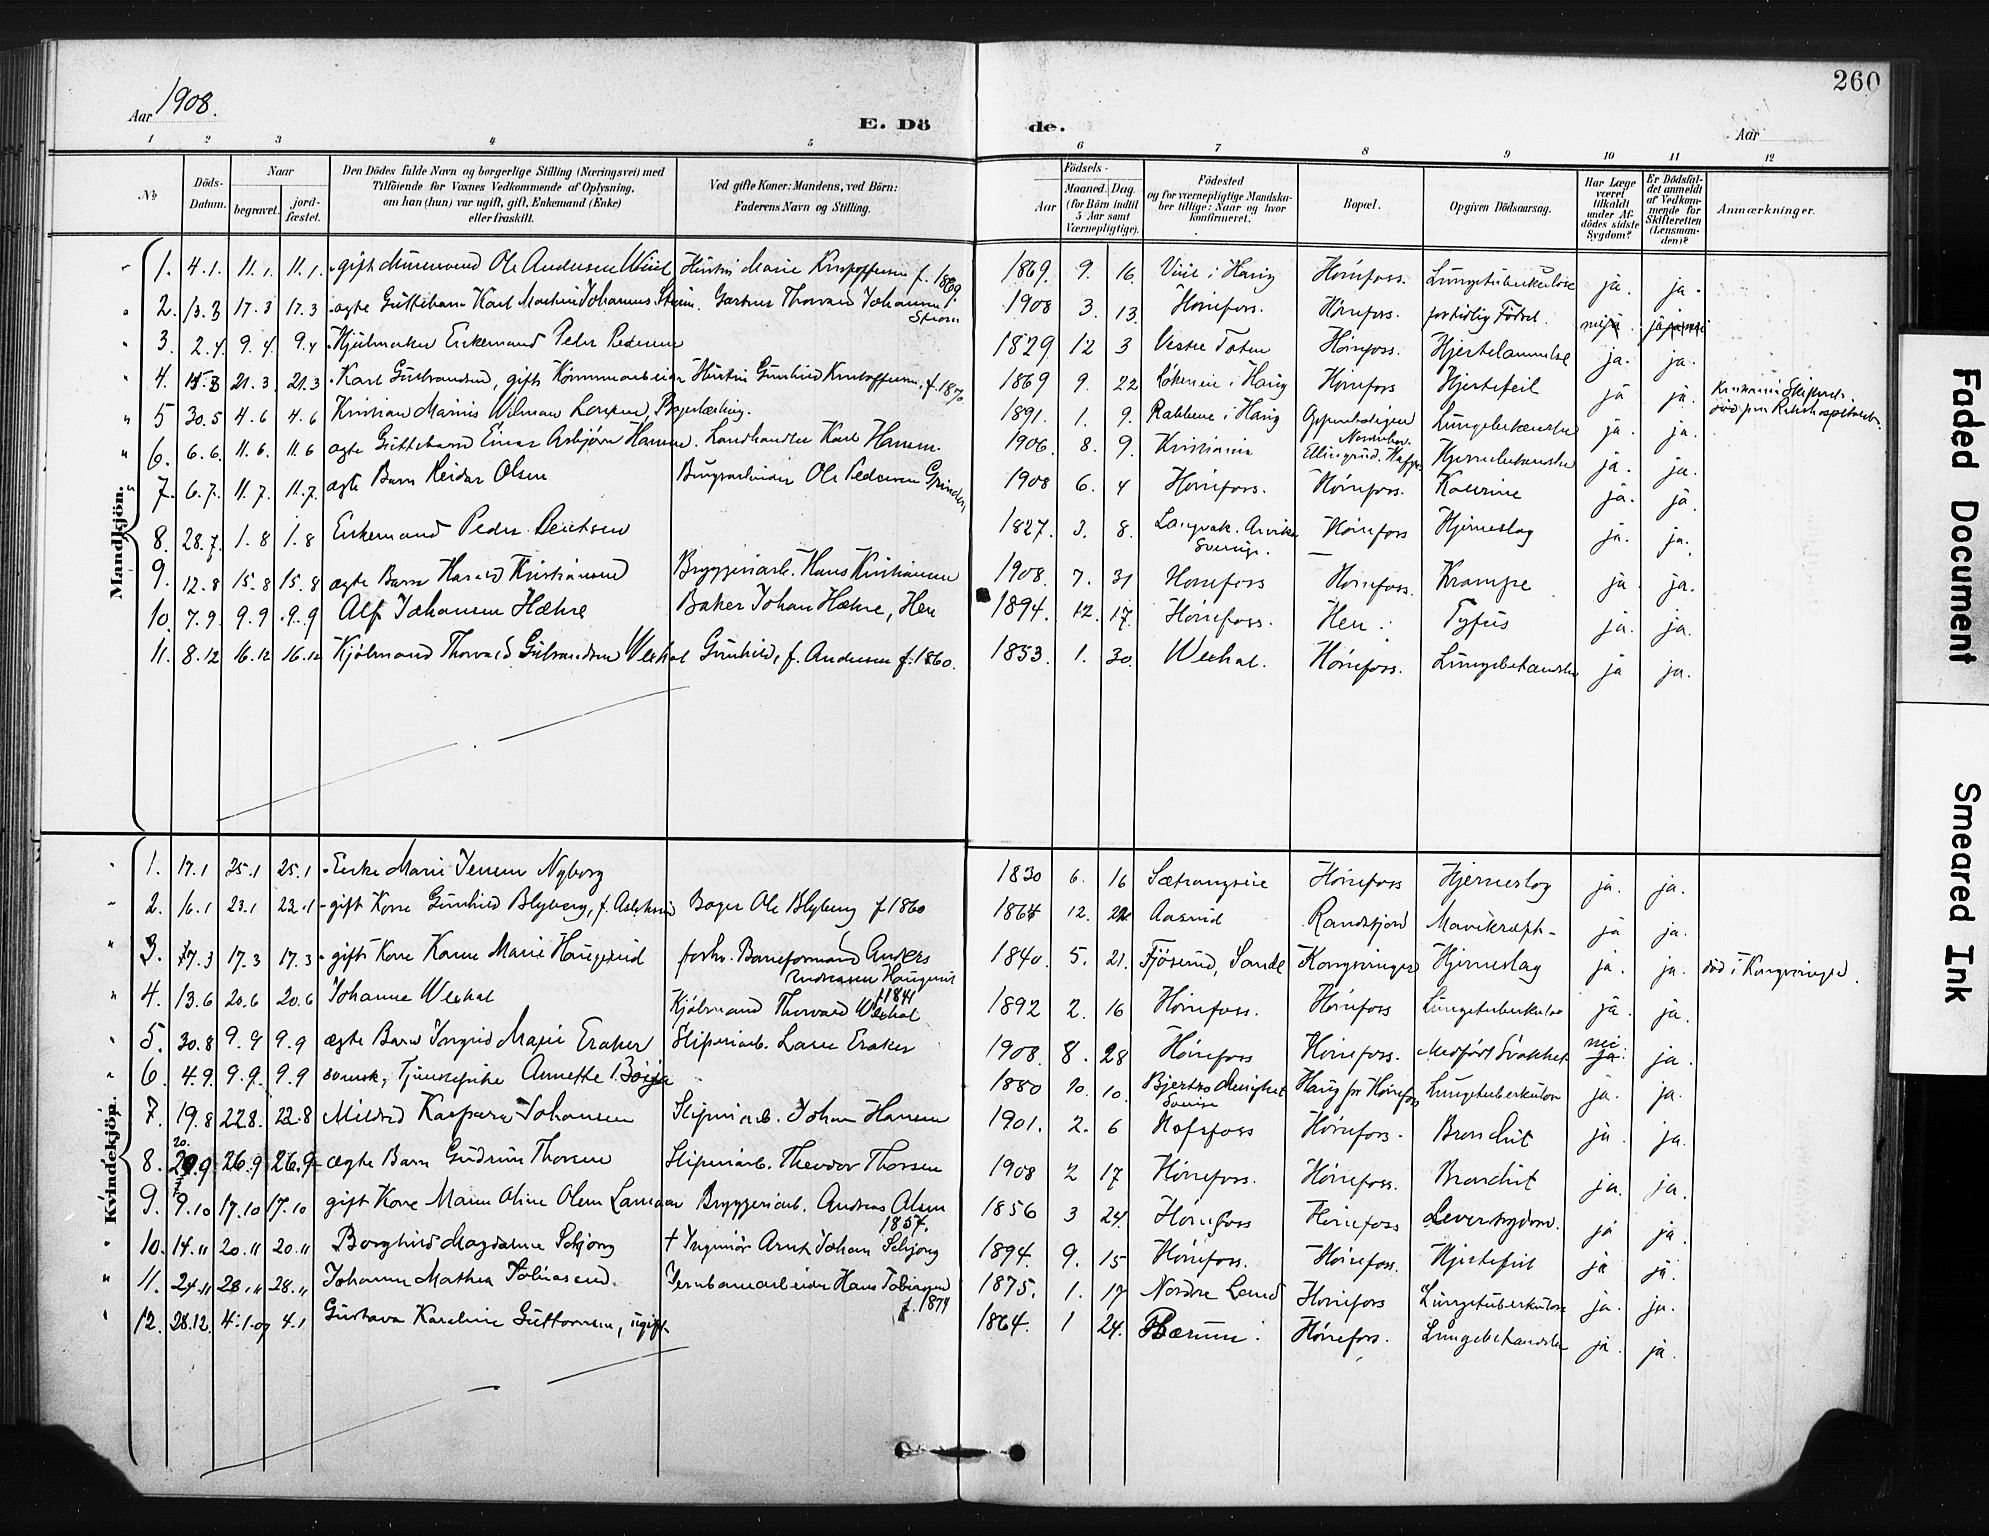 Aar 1908.
E. Dö
de.
Aar
260
1 2 3 4 5
6 7 8 9 10 11 12
No
Döds-Datum.
Naar
begravet.
jordfæstet.
Den Dödes fulde Navn og borgerlige Stilling (Næringsvei) med
Tilföiende for Voxnes Vedkommende af Oplysning,
om han (hun) var ugift, gift, Enkemand (Enke)
eller fraskilt.
Ved gifte Koner: Mandens, ved Börn:
Faderens Navn og Stilling.
Födsels-
Aar
Maaned. Dag.
(for Börn indtil
5 Aar samt
Værnepligtige).
Födested
og for værnepligtige Mandskaber tillige: Naar og hvor
konfirmeret.
Bopæl.
Opgiven Dödsaarsag.
Har Læge
været
tilkaldt
under Afdödes sidste
Sygdom?
Er Dödsfaldet anmeldt
af Vedkommende for
Skifteretten
(Lensmanden)?
Anmærkninger.
Mandkjön.
1. 4.1. 11.1. 11.1. gift Ole Andersen Hustru Marie f. 1869. 1869. 9. 16. i Haug Hønefoss. Lungetuberkulose ja. ja.
2. 13.3 17.3 17.3 ægte Guttebarn Karl Martin Johannes Strøm. Gartner Thorvald Johannes Strøm 1908 3. 13. Hønefoss. Hønefoss. for tidlig Fødsel.
3. 2.4 9.4 9.4 Hjulmaker Enkemand Peder Pedersen 1829. 12 3 Vestre Toten Hønefoss. Hjertelammelse ja. ja.
4. 15.3 21.3 21.3 Karl Gulbrandsen, gift Hustru Gunhild f. 1870. 1869 9. 22 i Haug Hønefoss Hjertefeil ja ja.
død paa Rikshospitalet.
5 30.5 4.6 4.6 Kristian 1891. 1. 9. i Haug Lungebetændelse ja. ja.
6. 6.6. 11.6. 11.6 ægte Guttebarn Einar Asbjørn Hansen. Landhandler Karl Hansen. 1906. 8. 9. Kristiania Hjernebetændelse ja. ja.
7. 6.7. 11.7. 11.7. ægte Barn Reidar Olsen Ole Pedersen 1908 6. 4 Hønefoss. Hønefoss. Kolerine ja. ja
8. 28.7. 1.8 1.8 Enkemand Peder Bentsen 1827. 3. 8. Arvika Sverige. Hønefoss Hjerneslag ja. ja.
9. 12.8 15.8 15.8 ægte Barn Harald Kristiansen Bryggeriarb. Hans Kristiansen 1908. 7. 31 Hønefoss Hønefoss. Krampe ja ja.
10. 7.9. 9.9 9.9 Alf Johansen Hæhre Baker Johan Hæhre, Hen 1894. 12. 17. Hønefoss. Hen. Tyfus ja. ja.
11. 8.12 16.12 16.12 Kjølmand Thorvald Gulbrandsen Wexhal Gunhild, f. Andersen f. 1860. 1853. 1. 30. Wexhal. Hønefoss. Lungebetændelse ja ja.
Kvindekjön.
1. 17.1 25.1 25.1 Enke Marie Jensen Nyborg 1830 6. 16 Hønefoss Hjerneslag ja. ja.
2. 16.1 23.1 23.1 gift Kone Gunhild Blyberg, f. Ole Blyberg f 1860 1864 12. Aasrud Randsfjord Mavekræft ja ja.
3. 17.3 17.3 gift Kone Karen Marie Haugerud forhv. Baneformand Anders Andreasen Haugerud 1841 1840. 5. 21. Sande Kongsvinger Hjerneslag ja. ja. død i Kongsvinger.
4. 13.6 20.6 20.6 Johanne Wexhal Kjølmand Thorvald Wexhal 1892 2. 16 Hønefoss. Hønefoss Lungetuberkulose ja ja.
5. 30.8 9.9 9.9 ægte Barn Ingrid Marie Eraker Sliperiarb. Lars Eraker 1908. 8. 28 Hønefoss Hønefoss. Medfødt Svakhet nei ja. ja
6. 4.9. 9.9. 9.9 svensk, Tjenestepike Annette Børja 1880 10. 10. Sverige Haug pr Hønefoss Lungetuberkulose ja. ja.
7. 19.8 22.8. 22.8 Mildrid Kaspara Johansen Sliperiarb. Johan Hansen 1901. 2. 6 Hofsfoss Hønefoss. Bronchit ja. ja.
8. 20.9 26.9 26.9 ægte Barn Gudrun Thorsen Sliperiarb. Theodor Thorsen 1908 2 17 Hønefoss. Hønefoss. Bronchit ja. ja.
9. 9.10 17.10 17.10 gift Kone Maren Oline Olsen Bryggeriarb. Andreas Olsen 1857. 1856 3 24. Hønefoss Hønefoss Leversygdom. ja ja.
10. 14.11 20.11 20.11 Borghild Magdalene Schjong † Ingeniør Arnt Johan Schjong 1894. 9. 15 Hønefoss. Hønefoss. Hjertefeil ja ja.
11. 24.11 28.11 28.11 Johanne Mathea Tobiassen. Jernbanearbeider Hans Tobiassen f. 1874 1875. 1. 17 Nordre Land Hønefoss Lungetuberkulose ja. ja.
12. 28.12. 4.1.09 4.1 Gustava Karoline Guttormsen, ugift 1864. 1 24. Bærum. Hønefoss. Lungebetændelse ja. ja.
Faded Document
Smeared Ink